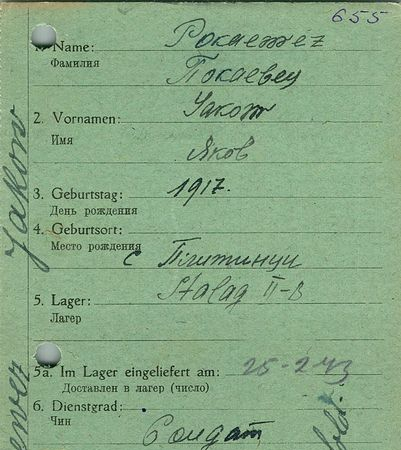 655
1. Name: Pokaewez
Фамилия Покаевец
2. Vornamen: Jakow
Имя Яков
3. Geburtstag: 1917.
День рождения
4. Geburtsort:
Место рождения с Плитинци
5. Lager: Stalag II-B
Лагерь
5a. Im Lager eingeliefert am: 25-2-43
Доставлен в лагерь (число)
6. Dienstgrad:
Чин Солдат
Jakow